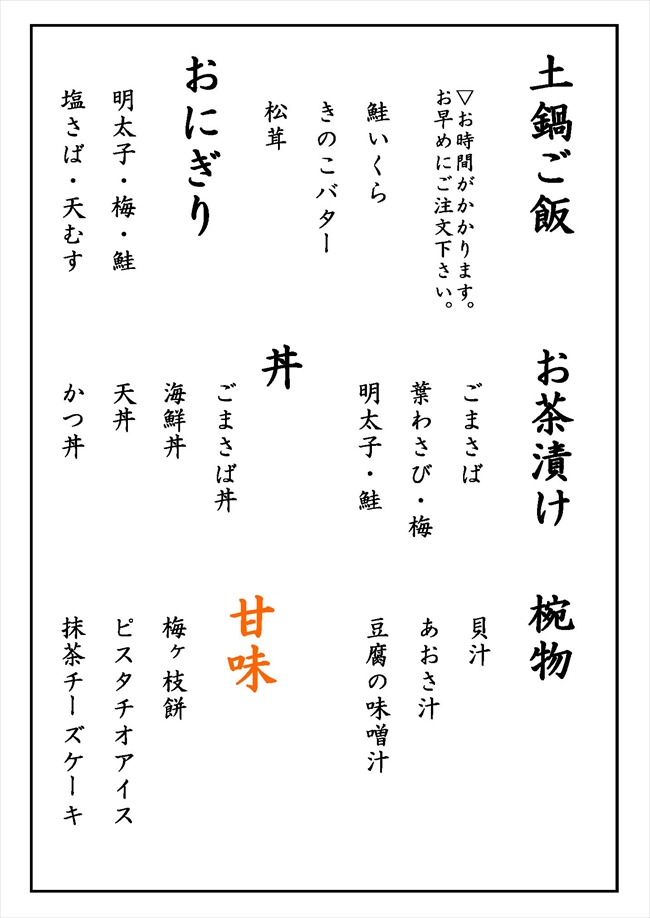 土鍋ご飯
▽お時間がかかります。
お早めにご注文下さい。
鮭いくら
きのこバター
松茸
おにぎり
明太子・梅・鮭
塩さば・天むす
お茶漬け
ごまさば
葉わさび・梅
明太子・鮭
丼
ごまさば丼
海鮮丼
天丼
かつ丼
椀物
貝汁
あおさ汁
豆腐の味噌汁
甘味
梅ヶ枝餅
ピスタチオアイス
抹茶チーズケーキ